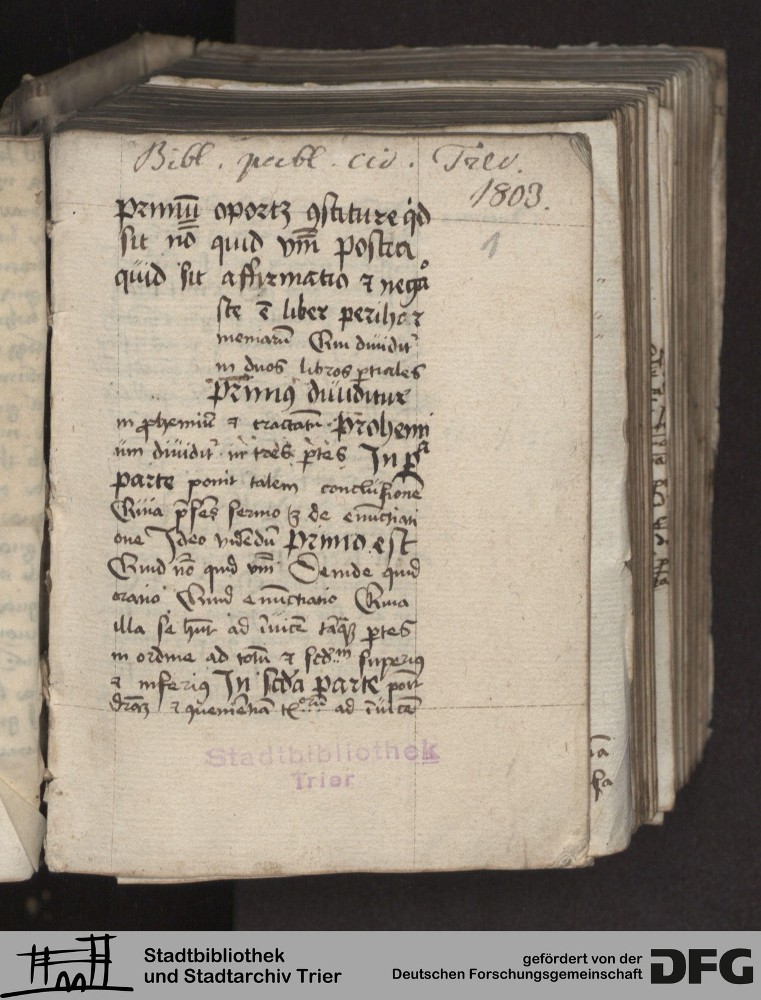 Bibl. publ. civ. Trev.
1803.
1
Primū oportꝫ ꝯstituere qͥd
sit nō quid vm̄ postea
quid sit affirmatio ⁊ negaͦ
Iste ē liber periher
meniarū Qui diuidit᷑
in duos libros ꝑtiales
Primꝰ diuiditur
in ꝓhemiū ⁊ tractatū Prohemi
um diuidit᷑ in tres ꝑtes In pͣ
parte ponit talem conclusionē
Quia p̄sēs sermo ē de enūctiati
one Ideo videndū Primo est
Quid nō quid vm̄ Deinde quid
oratio Quid enūctiatio Quia
illa se hn̄t ad īuicē tāqͣꝫ ꝑtes
in ordine ad totū ⁊ scd̄m superiꝰ
⁊ inferiꝰ In scd̄a parte poīt
dr̄aꝫ ⁊ ꝯuenīetiā ad īuicē
Stadtbibliothek
Trier
Stadtbibliothek
und Stadtarchiv Trier
gefördert von der
Deutschen Forschungsgemeinschaft
DFG